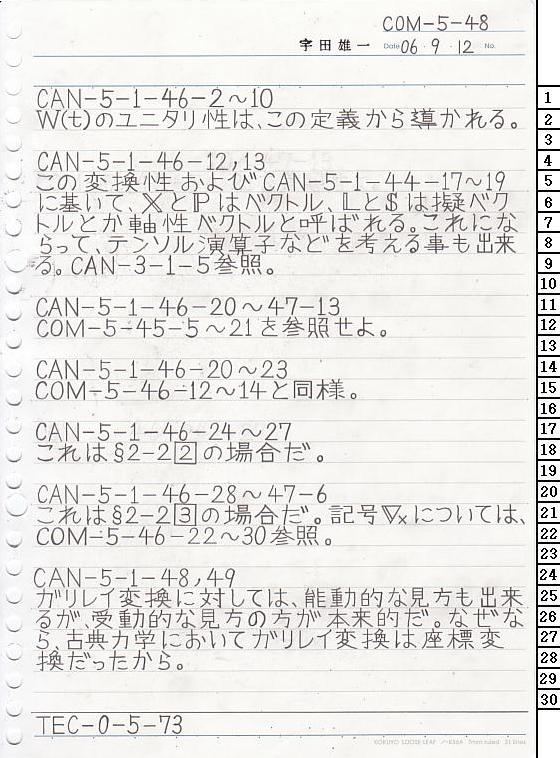 COM-5-48
宇田雄一 Date 06・9・12 No.
CAN-5-1-46-2～10
W(t)のユニタリ性は、この定義から導かれる。
CAN-5-1-46-12,13
この変換性およびCAN-5-1-44-17～19
に基いて、𝕏とℙはベクトル、𝕃と𝕊は擬ベク
トルとか軸性ベクトルと呼ばれる。これにな
らって、テンソル演算子などを考える事も出来
る。CAN-3-1-5参照。
CAN-5-1-46-20～47-13
COM-5-45-5～21を参照せよ。
CAN-5-1-46-20～23
COM-5-46-12～14と同様。
CAN-5-1-46-24～27
これは§2-2[2]の場合だ。
CAN-5-1-46-28～47-6
これは§2-2[3]の場合だ。記号∇xについては、
COM-5-46-22～30参照。
CAN-5-1-48,49
ガリレイ変換に対しては、能動的な見方も出来
るが、受動的な見方の方が本来的だ。なぜな
ら、古典力学においてガリレイ変換は座標変
換だったから。
TEC-0-5-73
KOKUYO LOOSE-LEAF ノ-836A 7mm ruled 31 lines
1
2
3
4
5
6
7
8
9
10
11
12
13
14
15
16
17
18
19
20
21
22
23
24
25
26
27
28
29
30